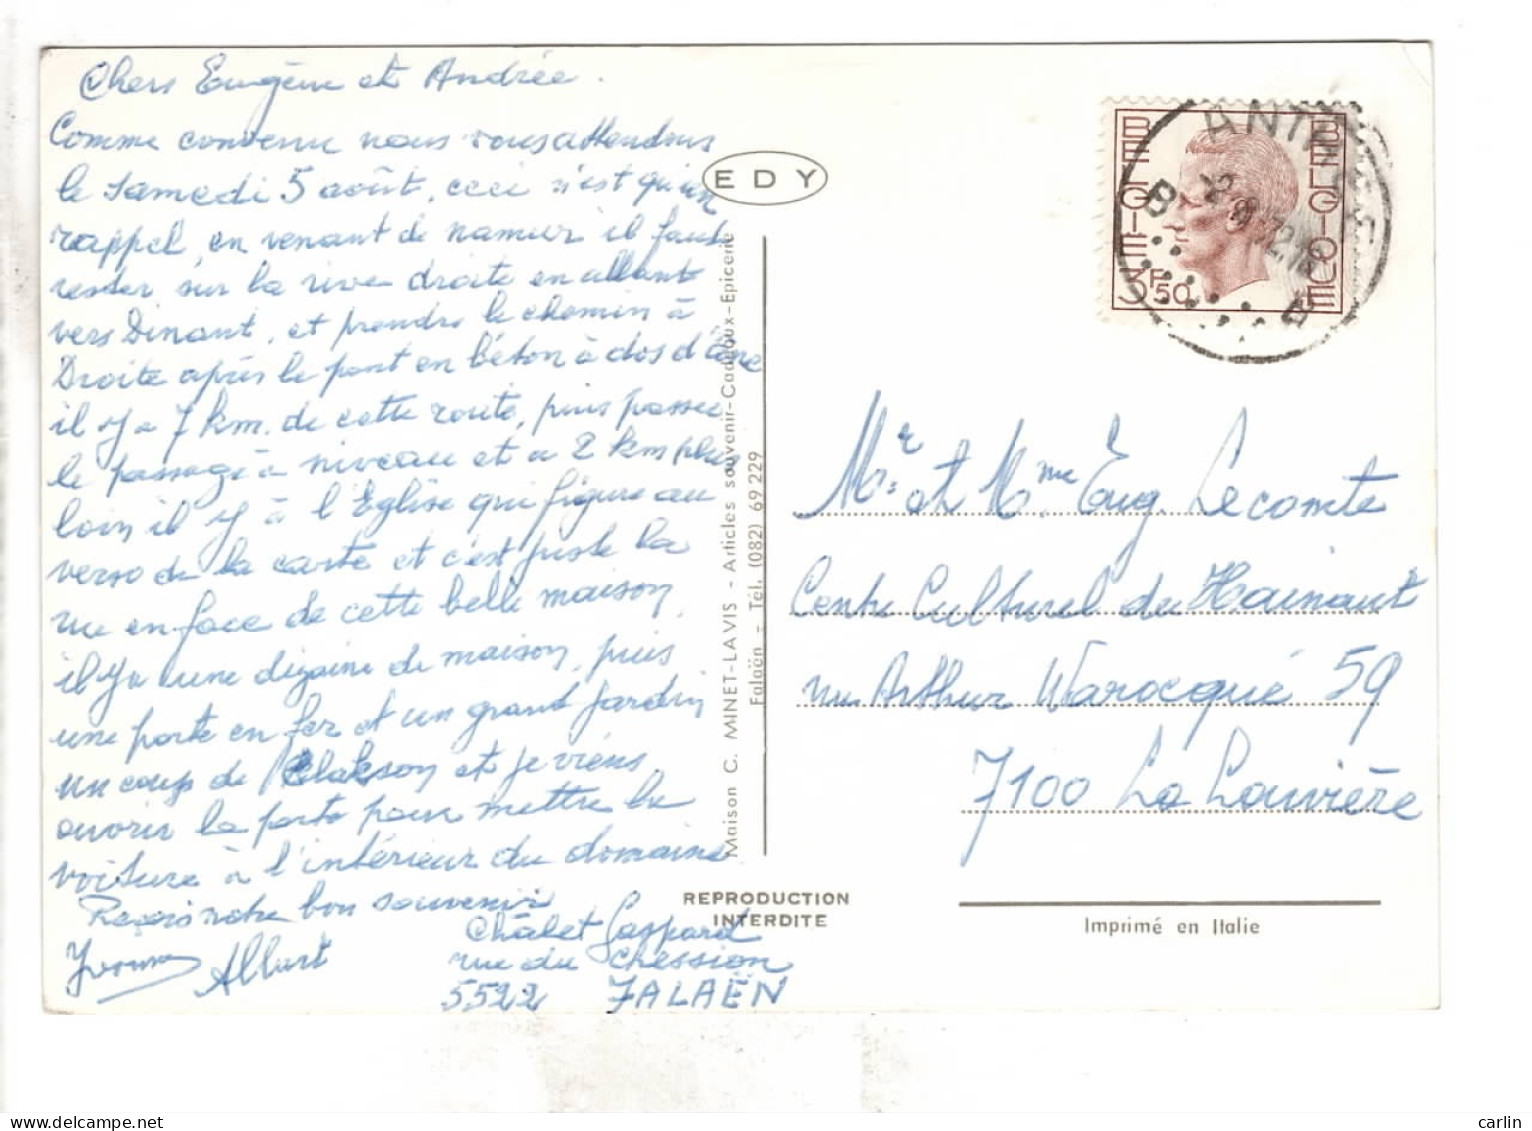 Chers Eugène et Andrée.
Comme convenu nous vous attendons
le samedi 5 août, ceci n'est qu'un
rappel, en venant de namur il faut
rester sur la rive droite en allant
vers Dinant, et prendre le chemin à
Droite après le pont en béton à dos d'âne
il y a 7 km. de cette route, puis passer
le passage à niveau et a 2 km plus
loin il y à l'Eglise qui figure au
verso de la carte et c'est juste la
rue en face de cette belle maison,
il y a une dizaine de maison, puis
une porte en fer et un grand jardin
un coup de klakson et je viens
ouvrir la porte pour mettre la
voiture à l'intérieur du domaine
Reçois notre bon souvenir
Yvonne Albert
Châlet Gaspard
rue du Chession
5522 FALAËN
EDY
Maison C. MINET-LAVIS - Articles souvenir-Cadeaux-Epicerie
Falaën - Tél. (082) 69 229
REPRODUCTION
INTERDITE
BELGIE BELGIQUE
3F50
Mr. et Mme Eug. Lecomte
Centre Culturel du Hainaut
rue Arthur Warocqué 59
7100 La Louvière
Imprimé en Italie
carlin